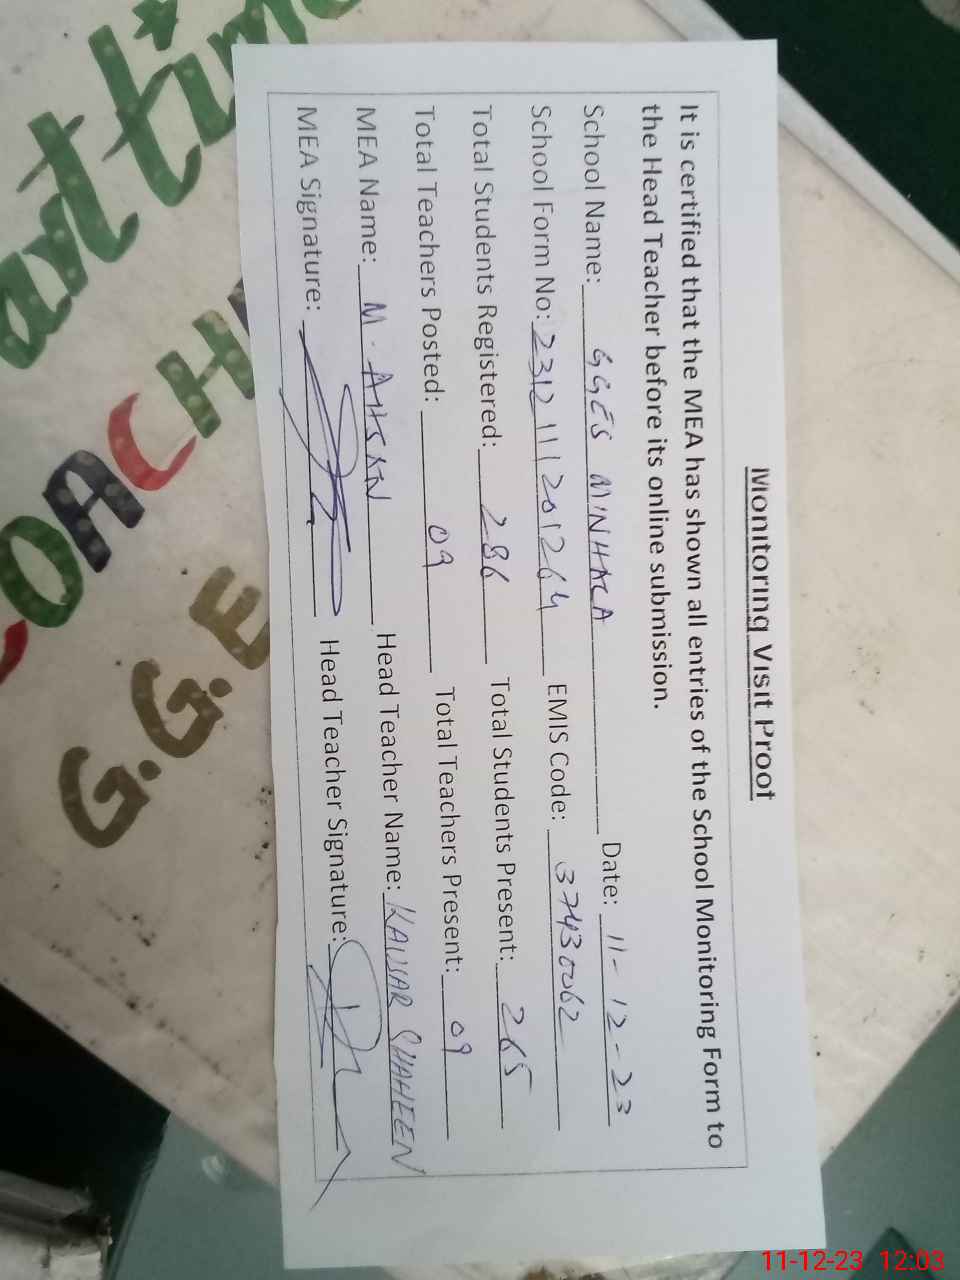 Monitoring Visit Proof
It is certified that the MEA has shown all entries of the School Monitoring Form to
the Head Teacher before its online submission.
School Name: GGES MINHALA Date: 11-12-23
School Form No: 2312111201264 EMIS Code: 37430062
Total Students Registered: 286 Total Students Present: 265
Total Teachers Posted: 09 Total Teachers Present: 09
MEA Name: M. AHSAN Head Teacher Name: KAUSAR SHAHEEN
MEA Signature: Head Teacher Signature:
COACH
G.G.E
11-12-23 12:03